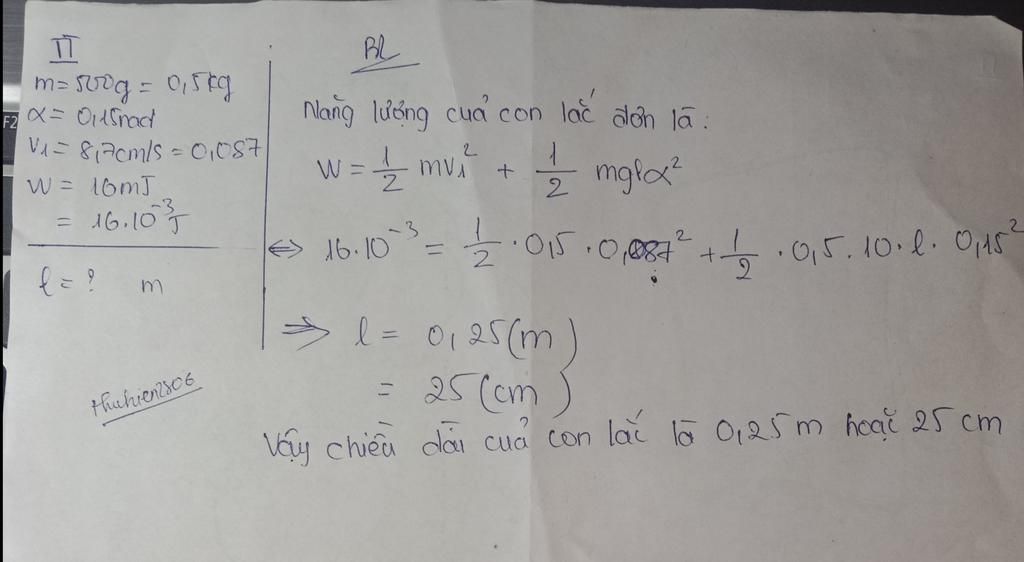 II
m = 500g = 0,5kg
α = 0,15rad
V1 = 8,7cm/s = 0,087
W = 16mJ
= 16.10^-3 J
l = ? m
thuhien2806
BL
Năng lượng cuả con lắc đơn là:
W = 1/2 mv1^2 + 1/2 mglα^2
⇔ 16.10^-3 = 1/2 . 0,5 . 0,087^2 + 1/2 . 0,5. 10. l. 0,15^2
⇒ l = 0,25(m)
= 25 (cm)
Vậy chiều dài cuả con lắc là 0,25m hoặc 25 cm
F2